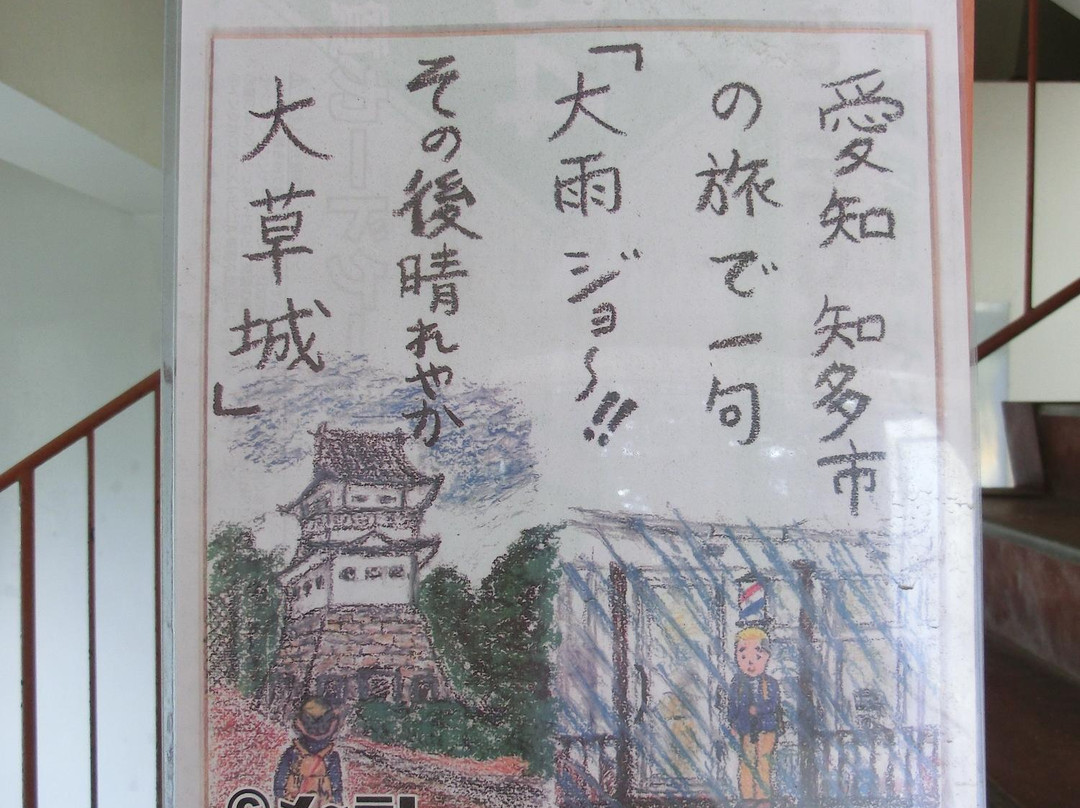 愛知 知多市
の旅で一句
「大雨ジョ〜!!
その後晴れやか
大草城」